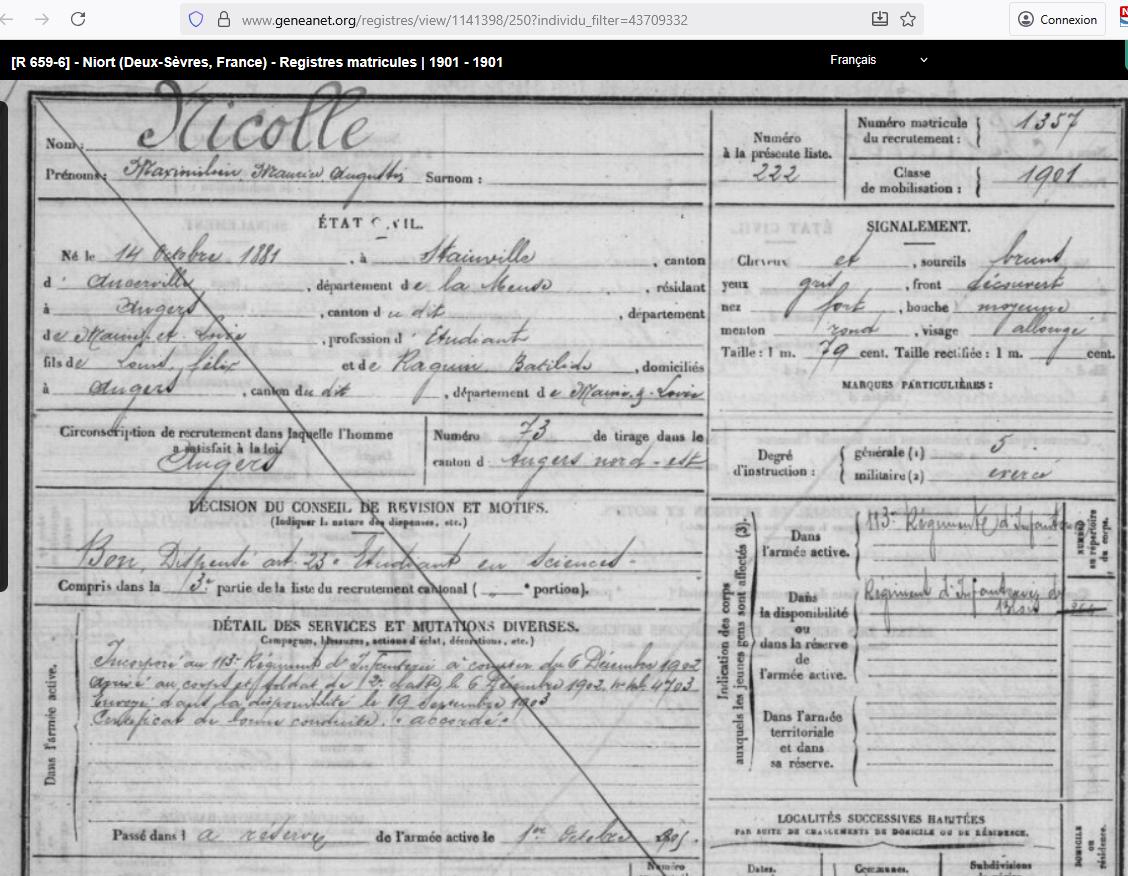 www.geneanet.org/registres/view/1141398/250?individu_filter=43709332
Connexion
[R 659-6] - Niort (Deux-Sèvres, France) - Registres matricules | 1901 - 1901
Français
Nom : Nicolle
Prénoms : Maximilien Maurice Augustin Surnom :
Numéro
à la présente liste.
222
Numéro matricule
du recrutement : 1357
Classe
de mobilisation : 1901
ÉTAT CIVIL.
Né le 14 Octobre 1881, à Stainville, canton
d'Ancerville, département de la Meuse, résidant
à Angers, canton du dit, département
de Maine et Loire, profession d'Etudiant
fils de Louis, félix et de Raguin Batilide, domiciliés
à Angers, canton du dit, département de Maine & Loire
SIGNALEMENT.
Cheveux et, sourcils bruns
yeux gris, front découvert
nez fort, bouche moyenne
menton rond, visage allongé
Taille : 1 m. 79 cent. Taille rectifiée : 1 m. cent.
MARQUES PARTICULIÈRES :
Circonscription de recrutement dans laquelle l'homme
a satisfait à la loi.
Angers
Numéro 73 de tirage dans le
canton d Angers nord-est
Degré
d'instruction :
générale (1) 5
militaire (2) exercé
DÉCISION DU CONSEIL DE REVISION ET MOTIFS.
(Indiquer la nature des dispenses, etc.)
Bon, Dispensé art. 23 - Etudiant en Sciences -
Compris dans la 3e partie de la liste du recrutement cantonal ( " e portion).
DÉTAIL DES SERVICES ET MUTATIONS DIVERSES.
Campagnes, blessures, actions d'éclat, décorations, etc.)
Dans l'armée active.
Incorporé au 113e Régiment d'Infanterie à compter du 6 Décembre 1902
Arrivé au corps et soldat de 2e classe le 6 Décembre 1902 4703
Envoyé dans la disponibilité le 19 Septembre 1903
Certificat de bonne conduite "accordé"
Passé dans la réserve de l'armée active le 1er Octobre 1905.
Indication des corps
auxquels les jeunes gens sont affectés (3).
Dans
l'armée active.
113e Régiment d'Infanterie
NUMÉRO
au répertoire
du corps.
Dans
la disponibilité
ou
dans la réserve
de
l'armée active.
Régiment d'Infanterie de
Blois
Dans l'armée
territoriale
et dans
sa réserve.
LOCALITÉS SUCCESSIVES HABITÉES
PAR SUITE DE CHANGEMENTS DE DOMICILE OU DE RÉSIDENCE.
Numéro
Dates.
Communes.
Subdivisions
DOMICILE
ou
résidence.